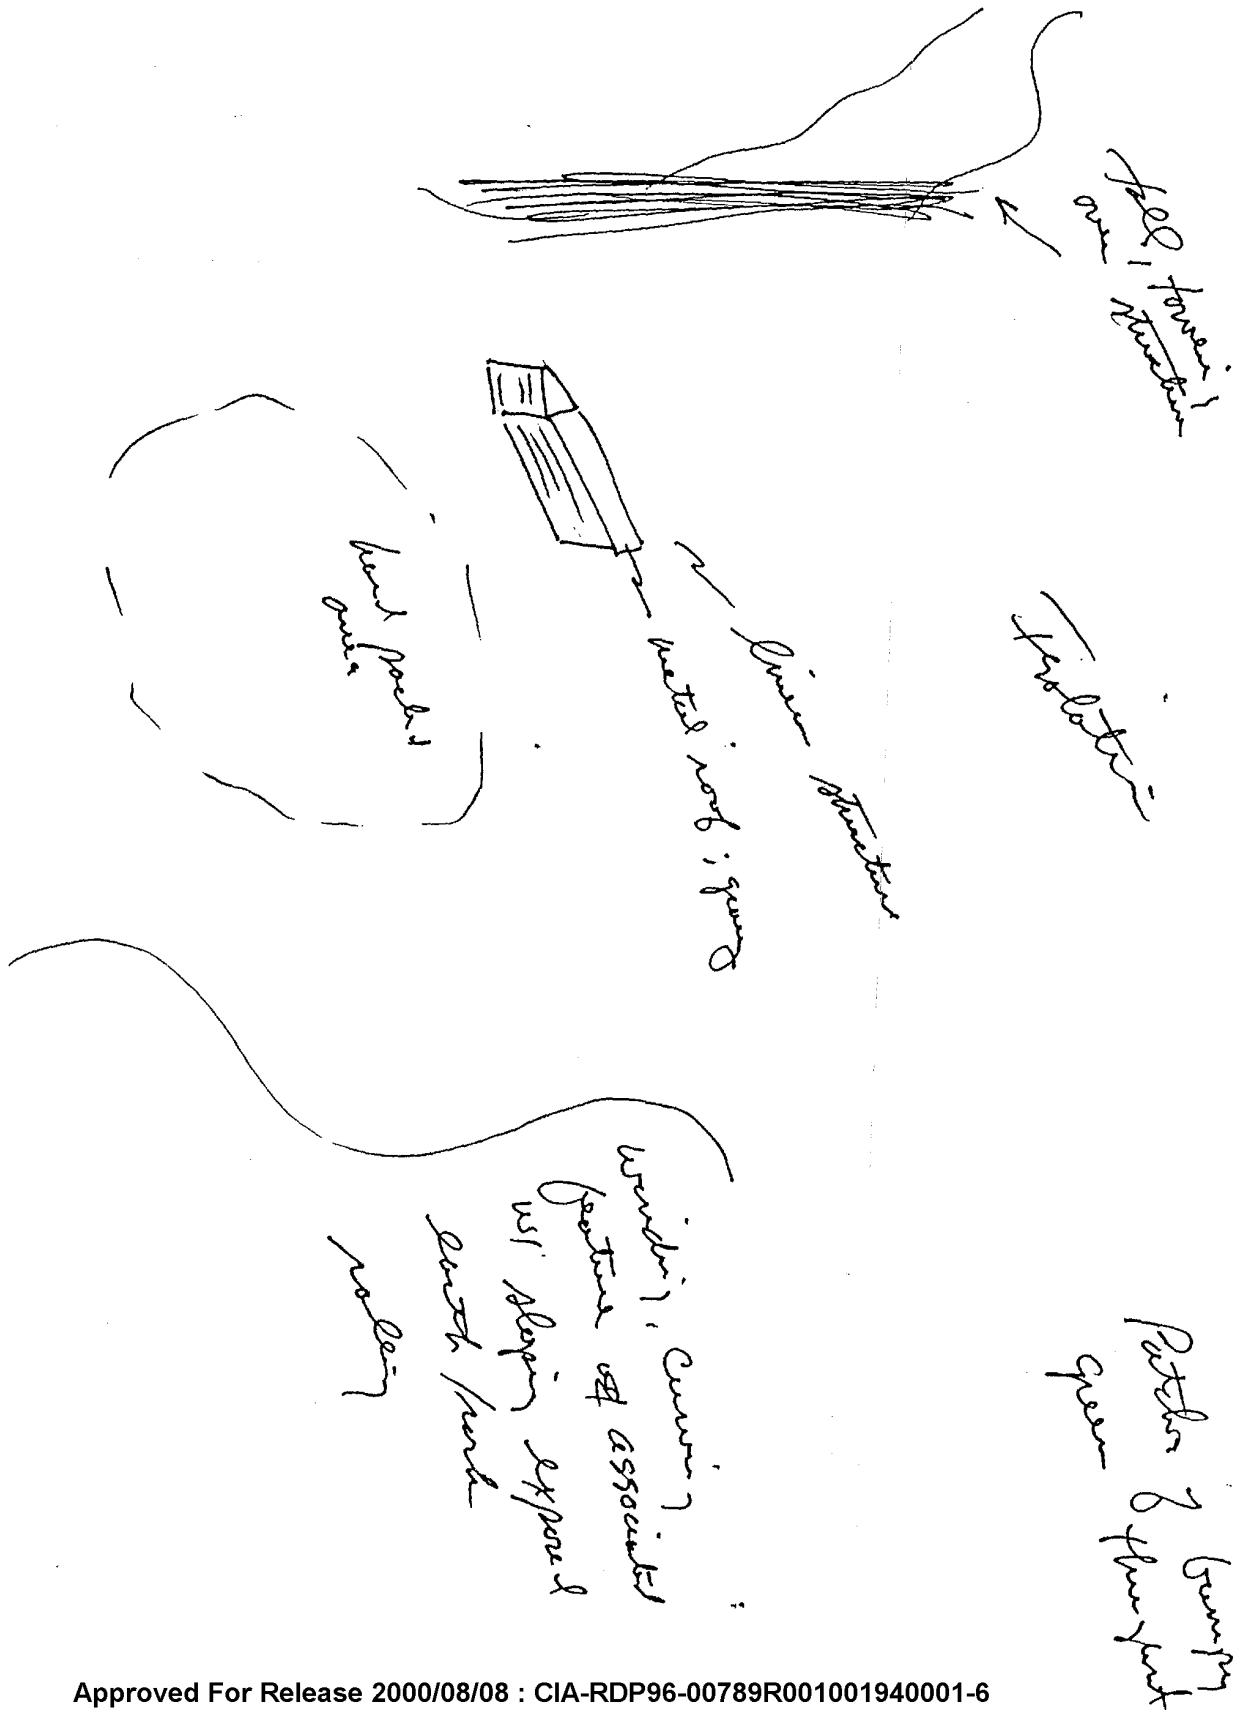 Tall, towering
over structure
Isolation
Patches of bumpy
green throughout
linear structure
metal roof; gray
hard packed
area
winding, curving
feature associated
w/ sloping exposed
earth/
rolling
Approved For Release 2000/08/08 : CIA-RDP96-00789R001001940001-6